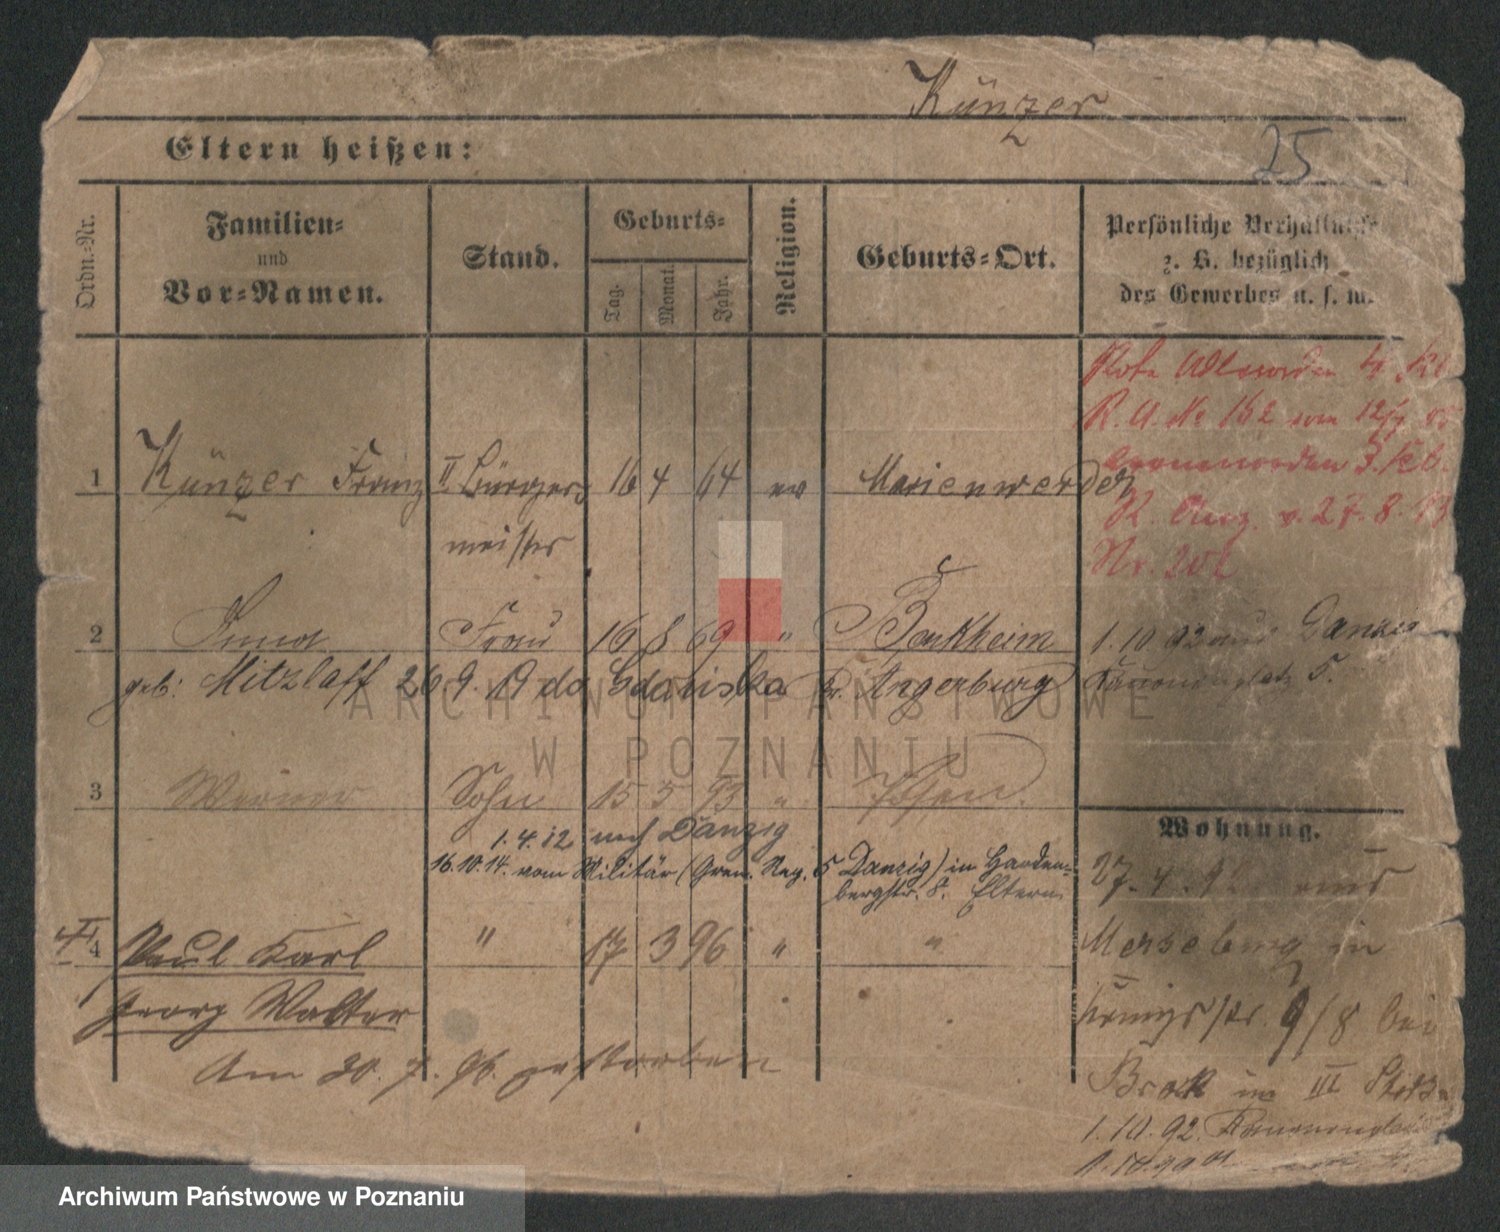 Künzer
25
Eltern heißen:
Ordn.-Nr.
Familien-
und
Vor-Namen.
Stand.
Geburts-
Tag.
Monat.
Jahr.
Religion.
Geburts-Ort.
Persönliche Verhältnisse
z. B. bezüglich
des Gewerbes u. s. w.
Rothe Adlerorden 4. Kl.
R. A. No 162 vom
Kronenorden 3. Kl.
R. Anz. v. 27. 8. 13
Nr. 202
1 Künzer Franz II. Bürger- 16 4 64 ev Marienwerder
meister
2 Anna Frau 16 8 69 " Benkheim
geb: Mitzlaff 26 9. 19 do Gdańska Kr. Angerburg
1.10.92 aus Danzig
Kanonenplatz 5.
3 Werner Sohn 15 5 93 " Posen.
1.4.12 nach Danzig
16.10.14. vom Militär (Gren. Reg. 5 Danzig) in Harden-
bergstr. 8. Eltern.
4 Paul Karl " 17 3 96 " "
Georg Walter
Am 30. 7. 96. gestorben
Wohnung.
27. 4. 92 aus
Merseburg in
Königsstr. 9/8 bei
im III Stock
1.10.92. Kanonenplatz
ARCHIWUM PAŃSTWOWE
W POZNANIU
Archiwum Państwowe w Poznaniu